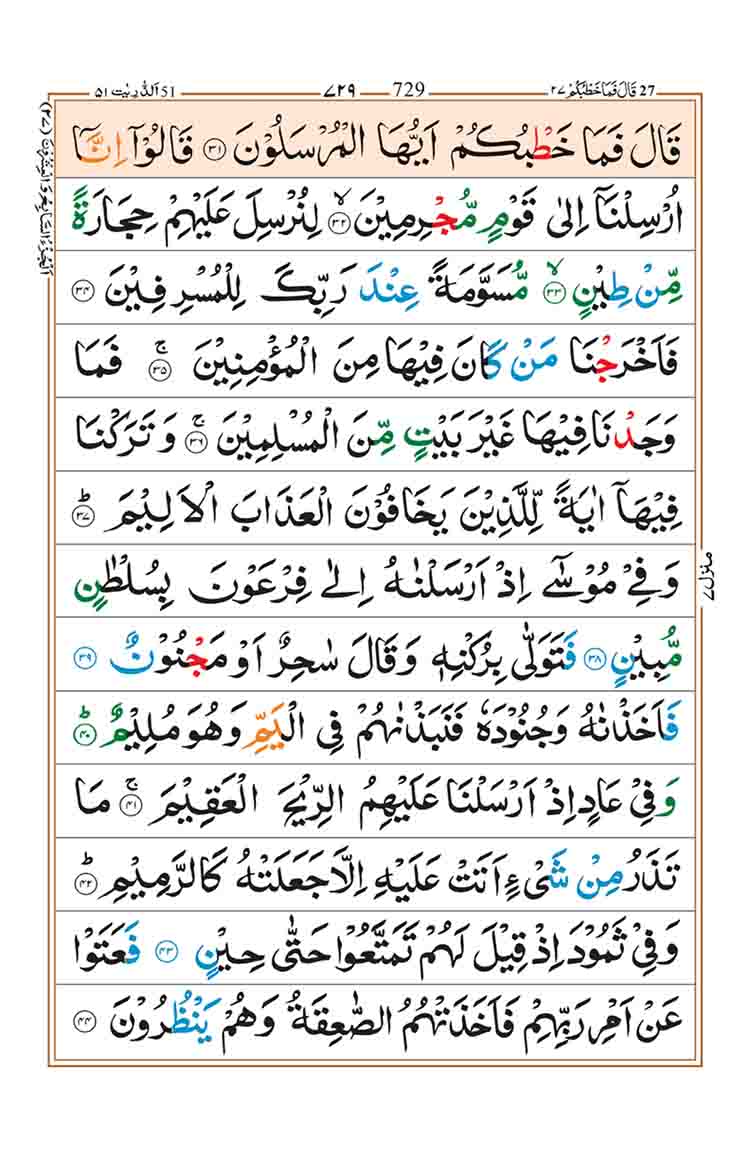 27 قَالَ فَمَا خَطْبُكُمْ ٢٧ — 729 — ٧٢٩ — 51 اَلذّٰرِیٰت ٥١
قَالَ فَمَا خَطْبُكُمْ اَیُّهَا الْمُرْسَلُوْنَ ﴿٣١﴾ قَالُوْۤا اِنَّاۤ
اُرْسِلْنَاۤ اِلٰى قَوْمٍ مُّجْرِمِیْنَۙ ﴿٣٢﴾ لِنُرْسِلَ عَلَیْهِمْ حِجَارَةً
مِّنْ طِیْنٍۙ ﴿٣٣﴾ مُّسَوَّمَةً عِنْدَ رَبِّكَ لِلْمُسْرِفِیْنَ ﴿٣٤﴾
فَاَخْرَجْنَا مَنْ كَانَ فِیْهَا مِنَ الْمُؤْمِنِیْنَۚ ﴿٣٥﴾ فَمَا
وَجَدْنَا فِیْهَا غَیْرَ بَیْتٍ مِّنَ الْمُسْلِمِیْنَۚ ﴿٣٦﴾ وَتَرَكْنَا
فِیْهَاۤ اٰیَةً لِّلَّذِیْنَ یَخَافُوْنَ الْعَذَابَ الْاَلِیْمَؕ ﴿٣٧﴾
وَفِیْ مُوْسٰۤى اِذْ اَرْسَلْنٰهُ اِلٰى فِرْعَوْنَ بِسُلْطٰنٍ
مُّبِیْنٍ ﴿٣٨﴾ فَتَوَلّٰى بِرُكْنِهٖ وَقَالَ سٰحِرٌ اَوْ مَجْنُوْنٌ ﴿٣٩﴾
فَاَخَذْنٰهُ وَجُنُوْدَهٗ فَنَبَذْنٰهُمْ فِی الْیَمِّ وَهُوَ مُلِیْمٌؕ ﴿٤٠﴾
وَفِیْ عَادٍ اِذْ اَرْسَلْنَا عَلَیْهِمُ الرِّیْحَ الْعَقِیْمَۚ ﴿٤١﴾ مَا
تَذَرُ مِنْ شَیْءٍ اَتَتْ عَلَیْهِ اِلَّا جَعَلَتْهُ كَالرَّمِیْمِؕ ﴿٤٢﴾
وَفِیْ ثَمُوْدَ اِذْ قِیْلَ لَهُمْ تَمَتَّعُوْا حَتّٰى حِیْنٍ ﴿٤٣﴾ فَعَتَوْا
عَنْ اَمْرِ رَبِّهِمْ فَاَخَذَتْهُمُ الصّٰعِقَةُ وَهُمْ یَنْظُرُوْنَ ﴿٤٤﴾
منزل ٧
الجزء السابع والعشرون (٢٧)